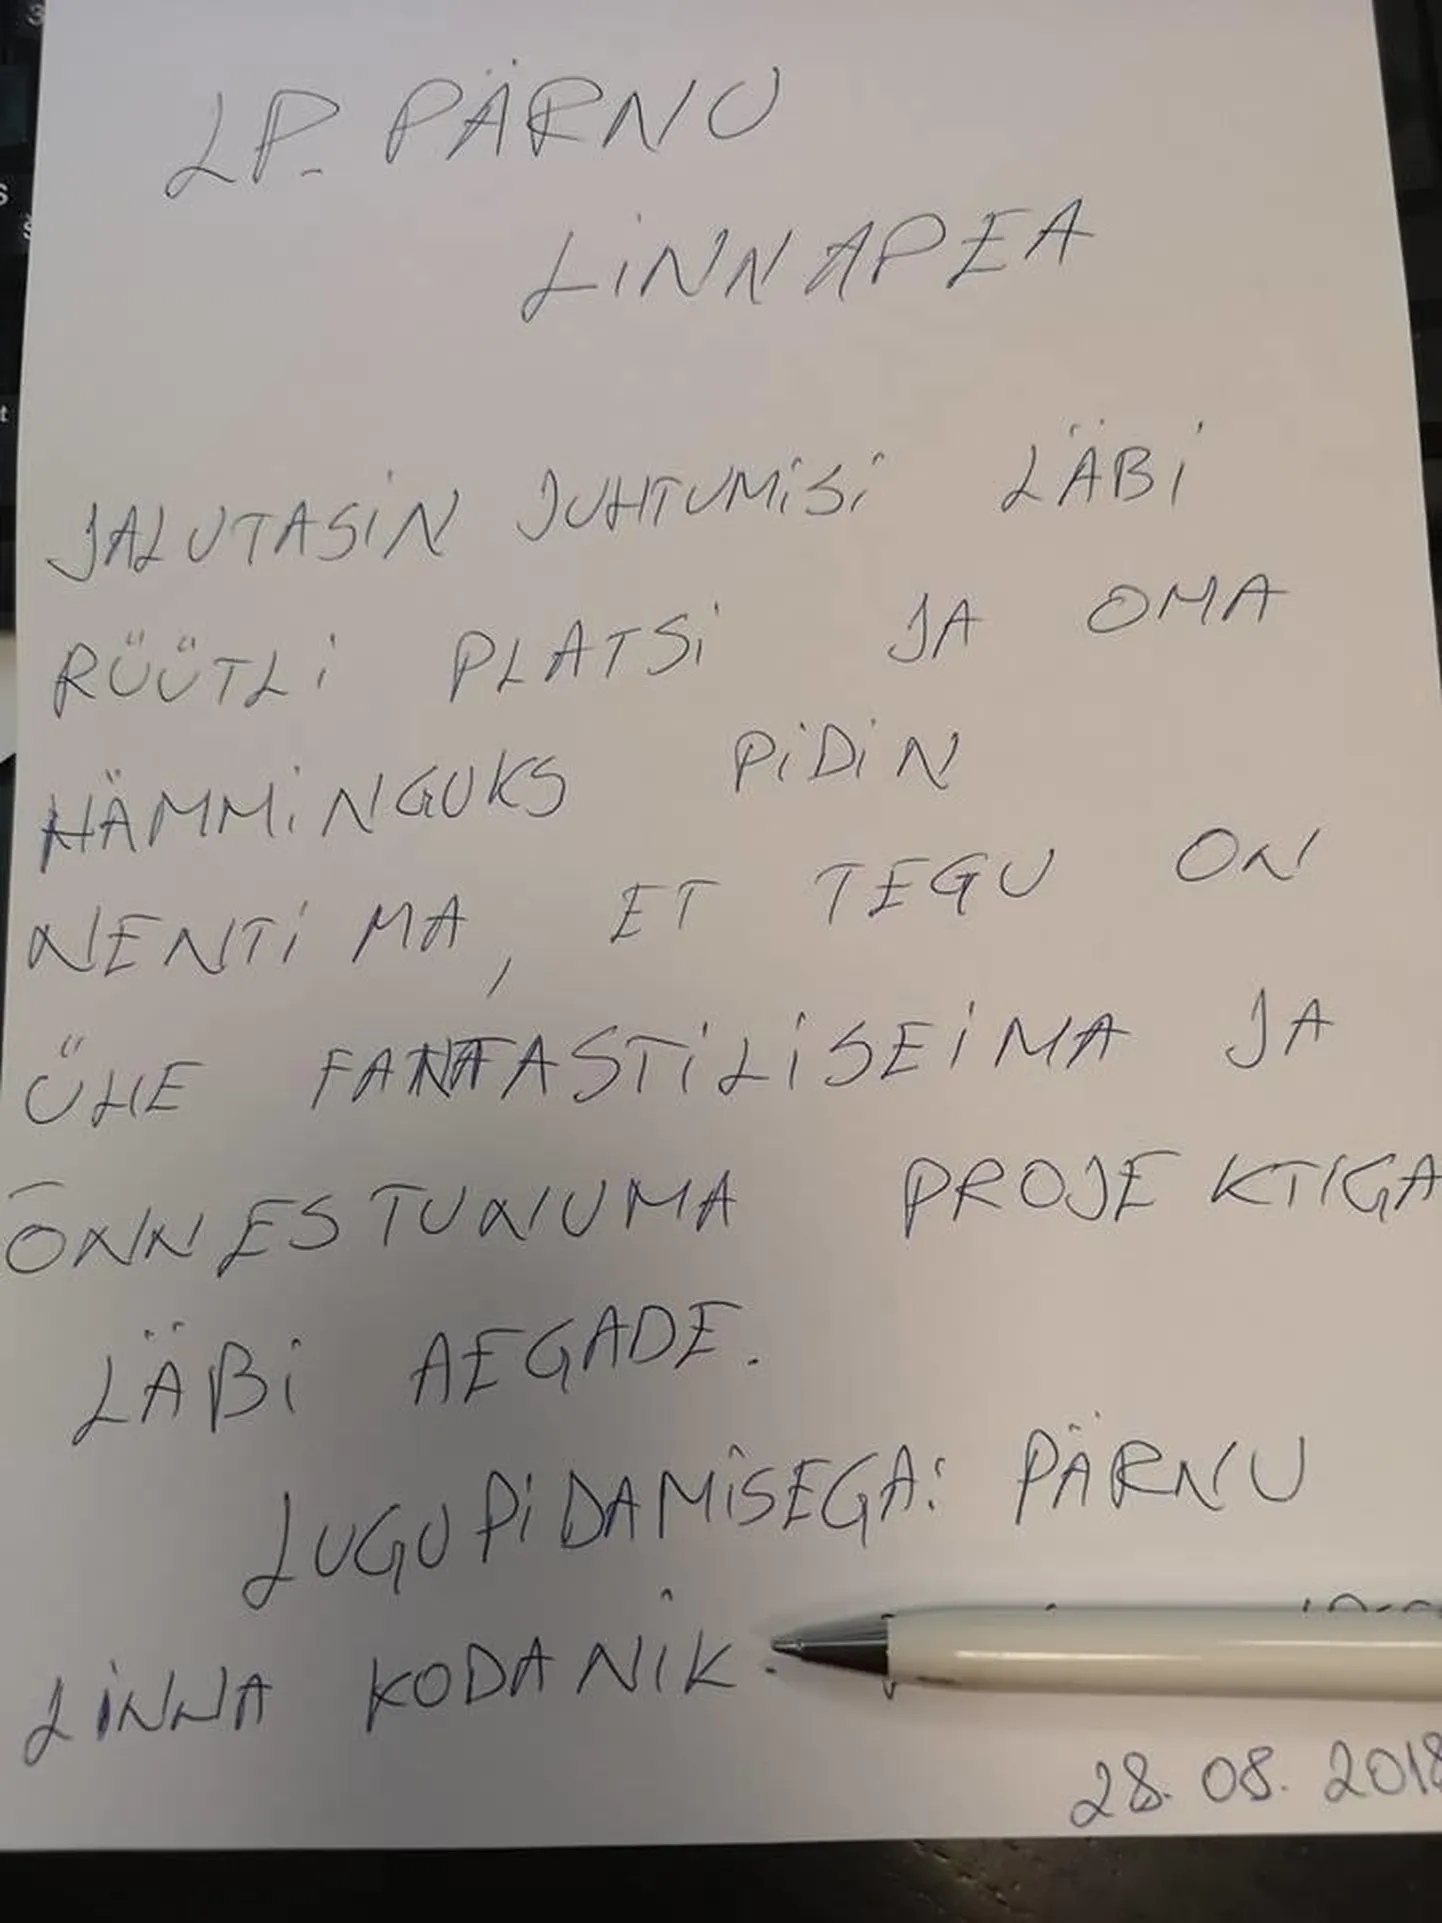 LP. PÄRNU
LINNAPEA
JALUTASIN JUHTUMISI LÄBI
RÜÜTLI PLATSI JA OMA
HÄMMINGUKS PIDIN
NENTIMA, ET TEGU ON
ÜHE FANTASTILISEIMA JA
ÕNNESTUNUMA PROJEKTIGA
LÄBI AEGADE.
LUGUPIDAMISEGA: PÄRNU
LINNA KODANIK.
28.08.2018